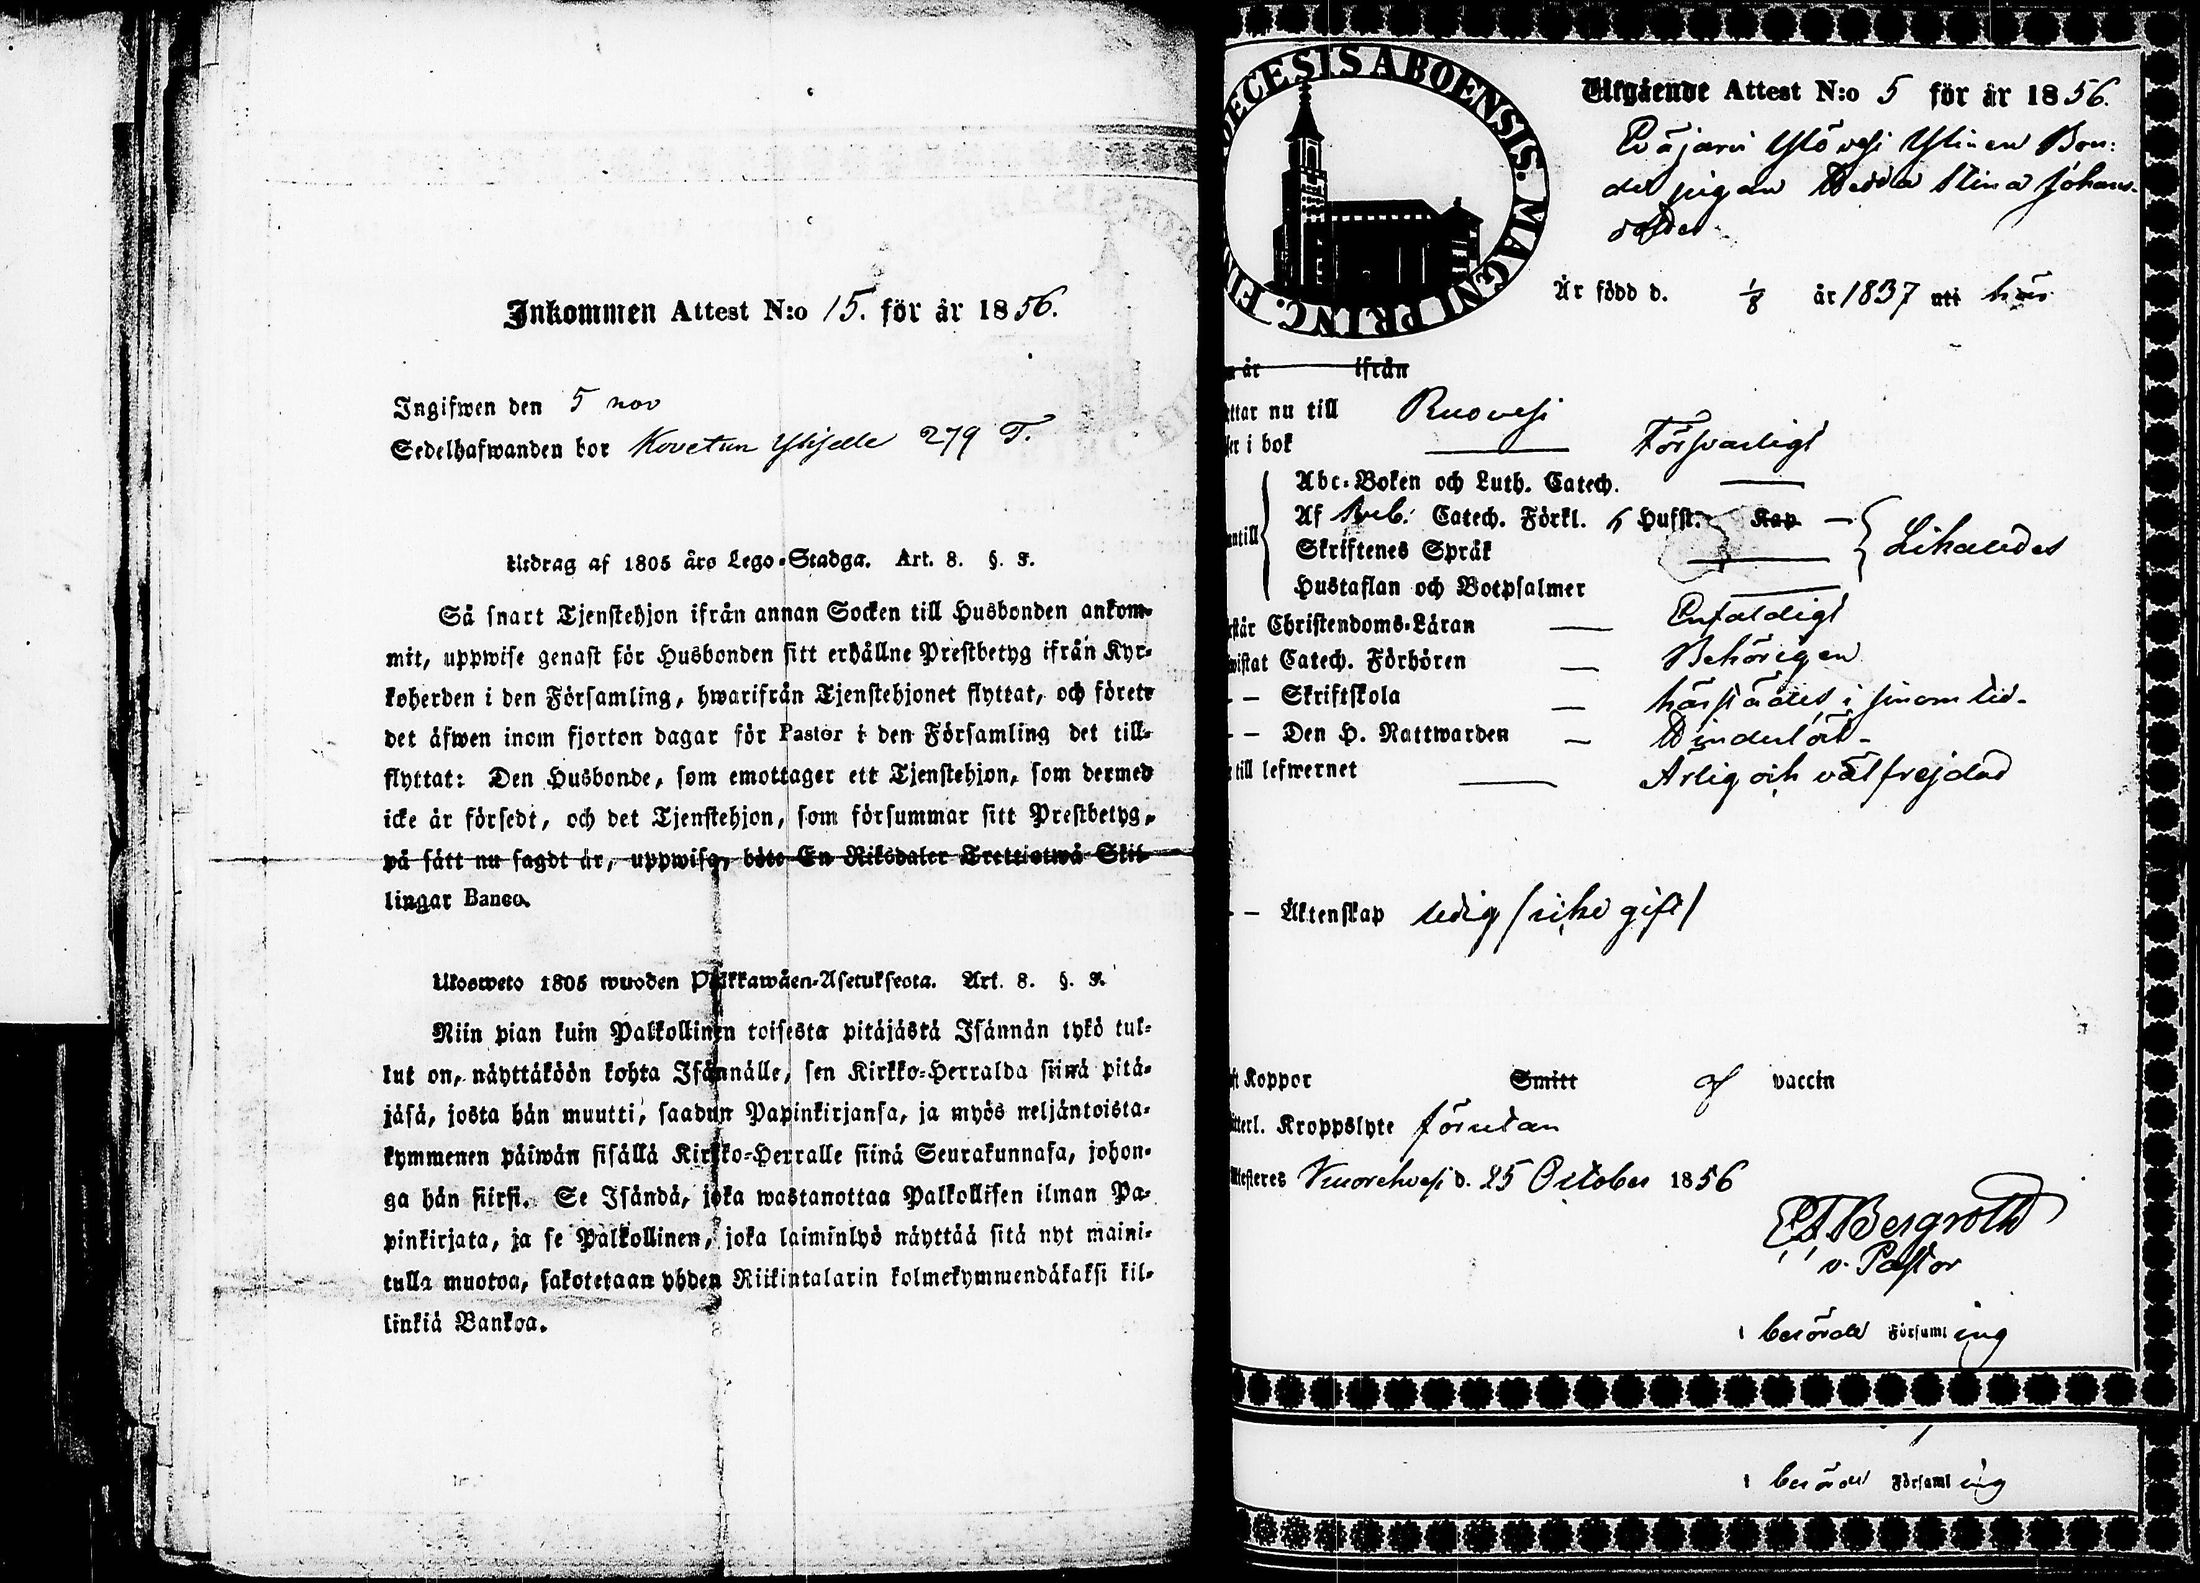 Inkommen Attest N:o 15. för år 1856.
Ingifwen den 5 nov
Sedelhafwanden bor 279 T.
Utdrag af 1805 års Lego-Stadga. Art. 8. §. 3.
Så snart Tjenstehjon ifrån annan Socken till Husbonden ankom-
mit, uppwise genast för Husbonden sitt erhållne Prestbetyg ifrån Kyr-
koherden i den Församling, hwarifrån Tjenstehjonet flyttat, och förete
det äfwen inom fjorton dagar för Pastor i den Församling det till-
flyttat: Den Husbonde, som emottager ett Tjenstehjon, som dermed
icke är försedt, och det Tjenstehjon, som försummar sitt Prestbetyg,
på sätt nu sagdt är, uppwisa, böte En Riksdaler Trettiotwå Skil-
lingar Banco.
Ulosweto 1805 wuoden Palkkawäen-Asetuksesta. Art. 8. §. 3.
Niin pian kuin Palkollinen toisesta pitäjästä Isännän tykö tul-
lut on, näyttäköön kohta Isännälle, sen Kirkko-Herralda siinä pitä-
jäsä, josta hän muutti, saadun Papinkirjansa, ja myös neljäntoista-
kymmenen päiwän sisällä Kirkko-Herralle siinä Seurakunnasa, johon-
ga hän siirsi. Se Isändä, joka wastanottaa Palkollisen ilman Pa-
pinkirjata, ja se Palkollinen, joka laiminlyö näyttää sitä nyt maini-
tulla muotoa, sakotetaan yhden Riikintalarin kolmekymmendäkaksi kil-
linkiä Bankoa.
DECESIS ABOENSIS. MAGNI PRINC. FIN
Utgående Attest N:o 5 för år 1856.
Eväjärvi Ylövesi Ylinen Bon-
de pigan Hedda Stina Johans-
dotter
Är född d. 1/8 år 1837 uti här
år ifrån
ttar nu till Ruovesi
er i bok Försvarligt
Abc-Boken och Luth. Catech.
Af Sveb. Catech. Förkl. 5 Hufst. Kap
antill
Skriftenes Språk Likaledes
Hustaflan och Botpsalmer
står Christendoms-Läran Enfaldigt
wistat Catech. Förhören Behörigen
– – Skriftskola härstädes i sinom tid.
– – Den H. Nattwarden Vinterlöst
till lefwernet Ärlig och välfrejdad
– – Äktenskap ledig (icke gift)
Koppor Smitt af vaccin
tterl. Kroppslyte förutan
Attesteres Kuorehvesi d. 25 October 1856
Bergroth
v. Pastor
i berörde Församling
i berörde Församling